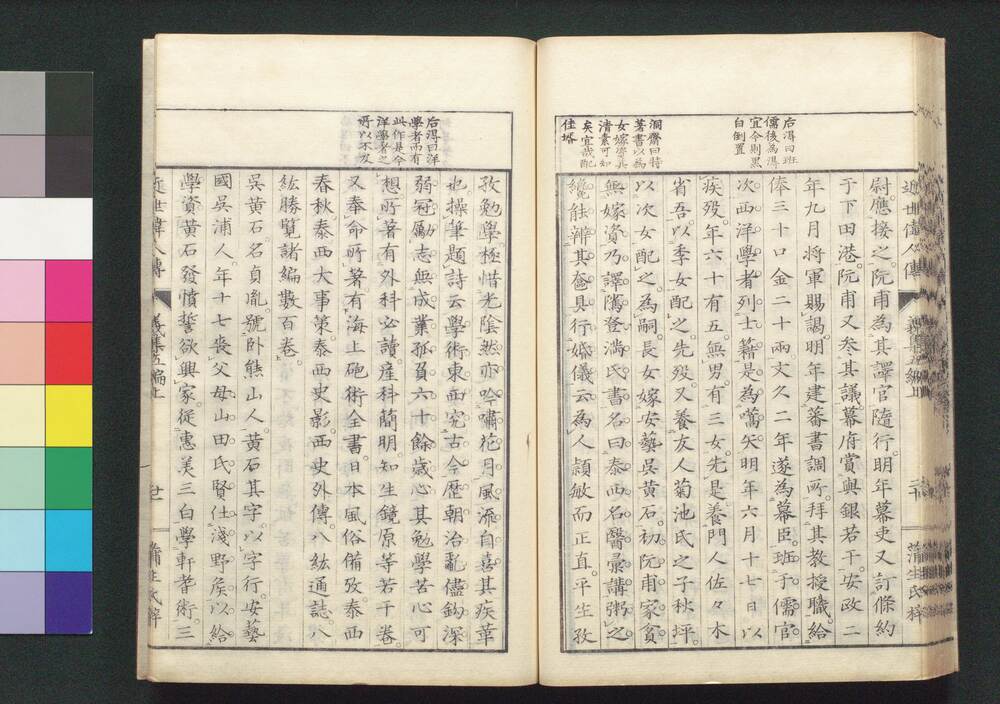 近世偉人傳
義集五編上
蒲生氏梓
后得曰班
儒後為得
宜今則黒
白倒置
洞齋曰特
著書以為
女嫁資其
清素可知
矣宜哉配
佳壻
尉應接之阮甫為其譯官隨行明年幕吏又訂條約
于下田港阮甫又參其議幕府賞與銀若干安政二
年九月將軍賜謁明年建蕃書調所拜其教授職給
俸三十口金二十兩文久二年遂為幕臣班于儒官
次西洋學者列士籍是為嚆矢明年六月十七日以
疾歿年六十有五無男有三女先是養門人佐々木
省吾以季女配之先歿又養友人菊池氏之子秋坪
以次女配之為嗣長女嫁安藝吳黄石初阮甫家貧
無嫁資乃譯書名曰泰西名醫彙講粥之
纔能辨其奩具行婚儀云為人頴敏而正直平生孜
后得曰洋
學者而有
此作是今
洋學者之
所以不及
孜勉學極惜光陰然亦吟嘯花月風流自喜其疾革
也操筆題詩云學術東西究古今歷朝治亂儘鈎深
弱冠勵志無成業孤負六十餘歲心其勉學苦心可
想所著有外科必讀産科簡明知生鏡原等若干卷
又奉命所著有海上砲術全書日本風俗備攷泰西
春秋泰西大事策泰西史影西史外傳八紘通誌八
紘勝覽諸編數百卷
吳黄石名貞胤號卧熊山人黄石其字以字行安藝
國吳浦人年十七喪父母山田氏賢仕淺野矦以給
學資黄石發憤誓欲興家從惠美三白學軒耆術三
近世偉人傳
義集五編上
廿一
蒲生氏梓